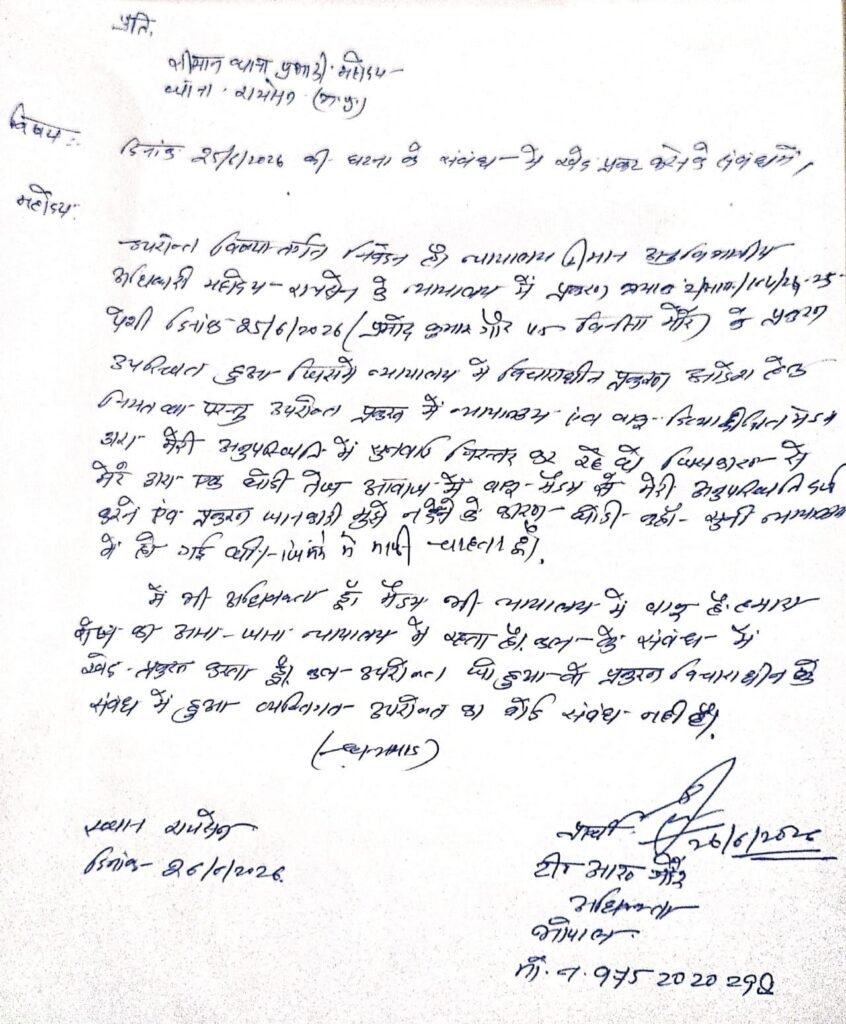 प्रति,
श्रीमान थाना प्रभारी महोदय
थाना रायसेन (म.प्र.)
विषय :-
दिनांक 25/6/2026 की घटना के संबंध में खेद प्रकट करने के संबंध में।
महोदय,
उपरोक्त विषयांतर्गत निवेदन है। न्यायालय श्रीमान अनुविभागीय
अधिकारी महोदय रायसेन के न्यायालय में प्रकरण क्रमांक
पेशी दिनांक 25/6/2026 (प्रमोद कुमार गौर) के प्रकरण
उपस्थित हुआ जिसमें न्यायालय में विचाराधीन प्रकरण आदेश हेतु
नियत था परन्तु उपरोक्त प्रकरण में न्यायालय एवं मैडम
द्वारा मेरी अनुपस्थिति में सुनवाई निरन्तर कर रहे थे जिस कारण से
मेरे द्वारा एक थोडी तेज आवाज में मैडम से मेरी अनुपस्थिति दर्ज
करने एवं प्रकरण जानकारी मुझे न देने के कारण थोडी कहा सुनी न्यायालय
में हो गई थी। माफी चाहता हूँ।
मैं भी अधिवक्ता हूँ। मैडम भी न्यायालय में है। हमारा
आना जाना न्यायालय में रहता है। कल के संबंध में
खेद प्रकट करता हूँ। कल उपरोक्त जो हुआ वो प्रकरण विचाराधीन के
संबंध में हुआ व्यक्तिगत उपरोक्त का कोई संबंध नही है।
(धन्यवाद)
स्थान रायसेन
दिनांक 26/6/2026
प्रार्थी
26/6/2026
गौर
अधिवक्ता
भोपाल
मो. न. 975 2020 290